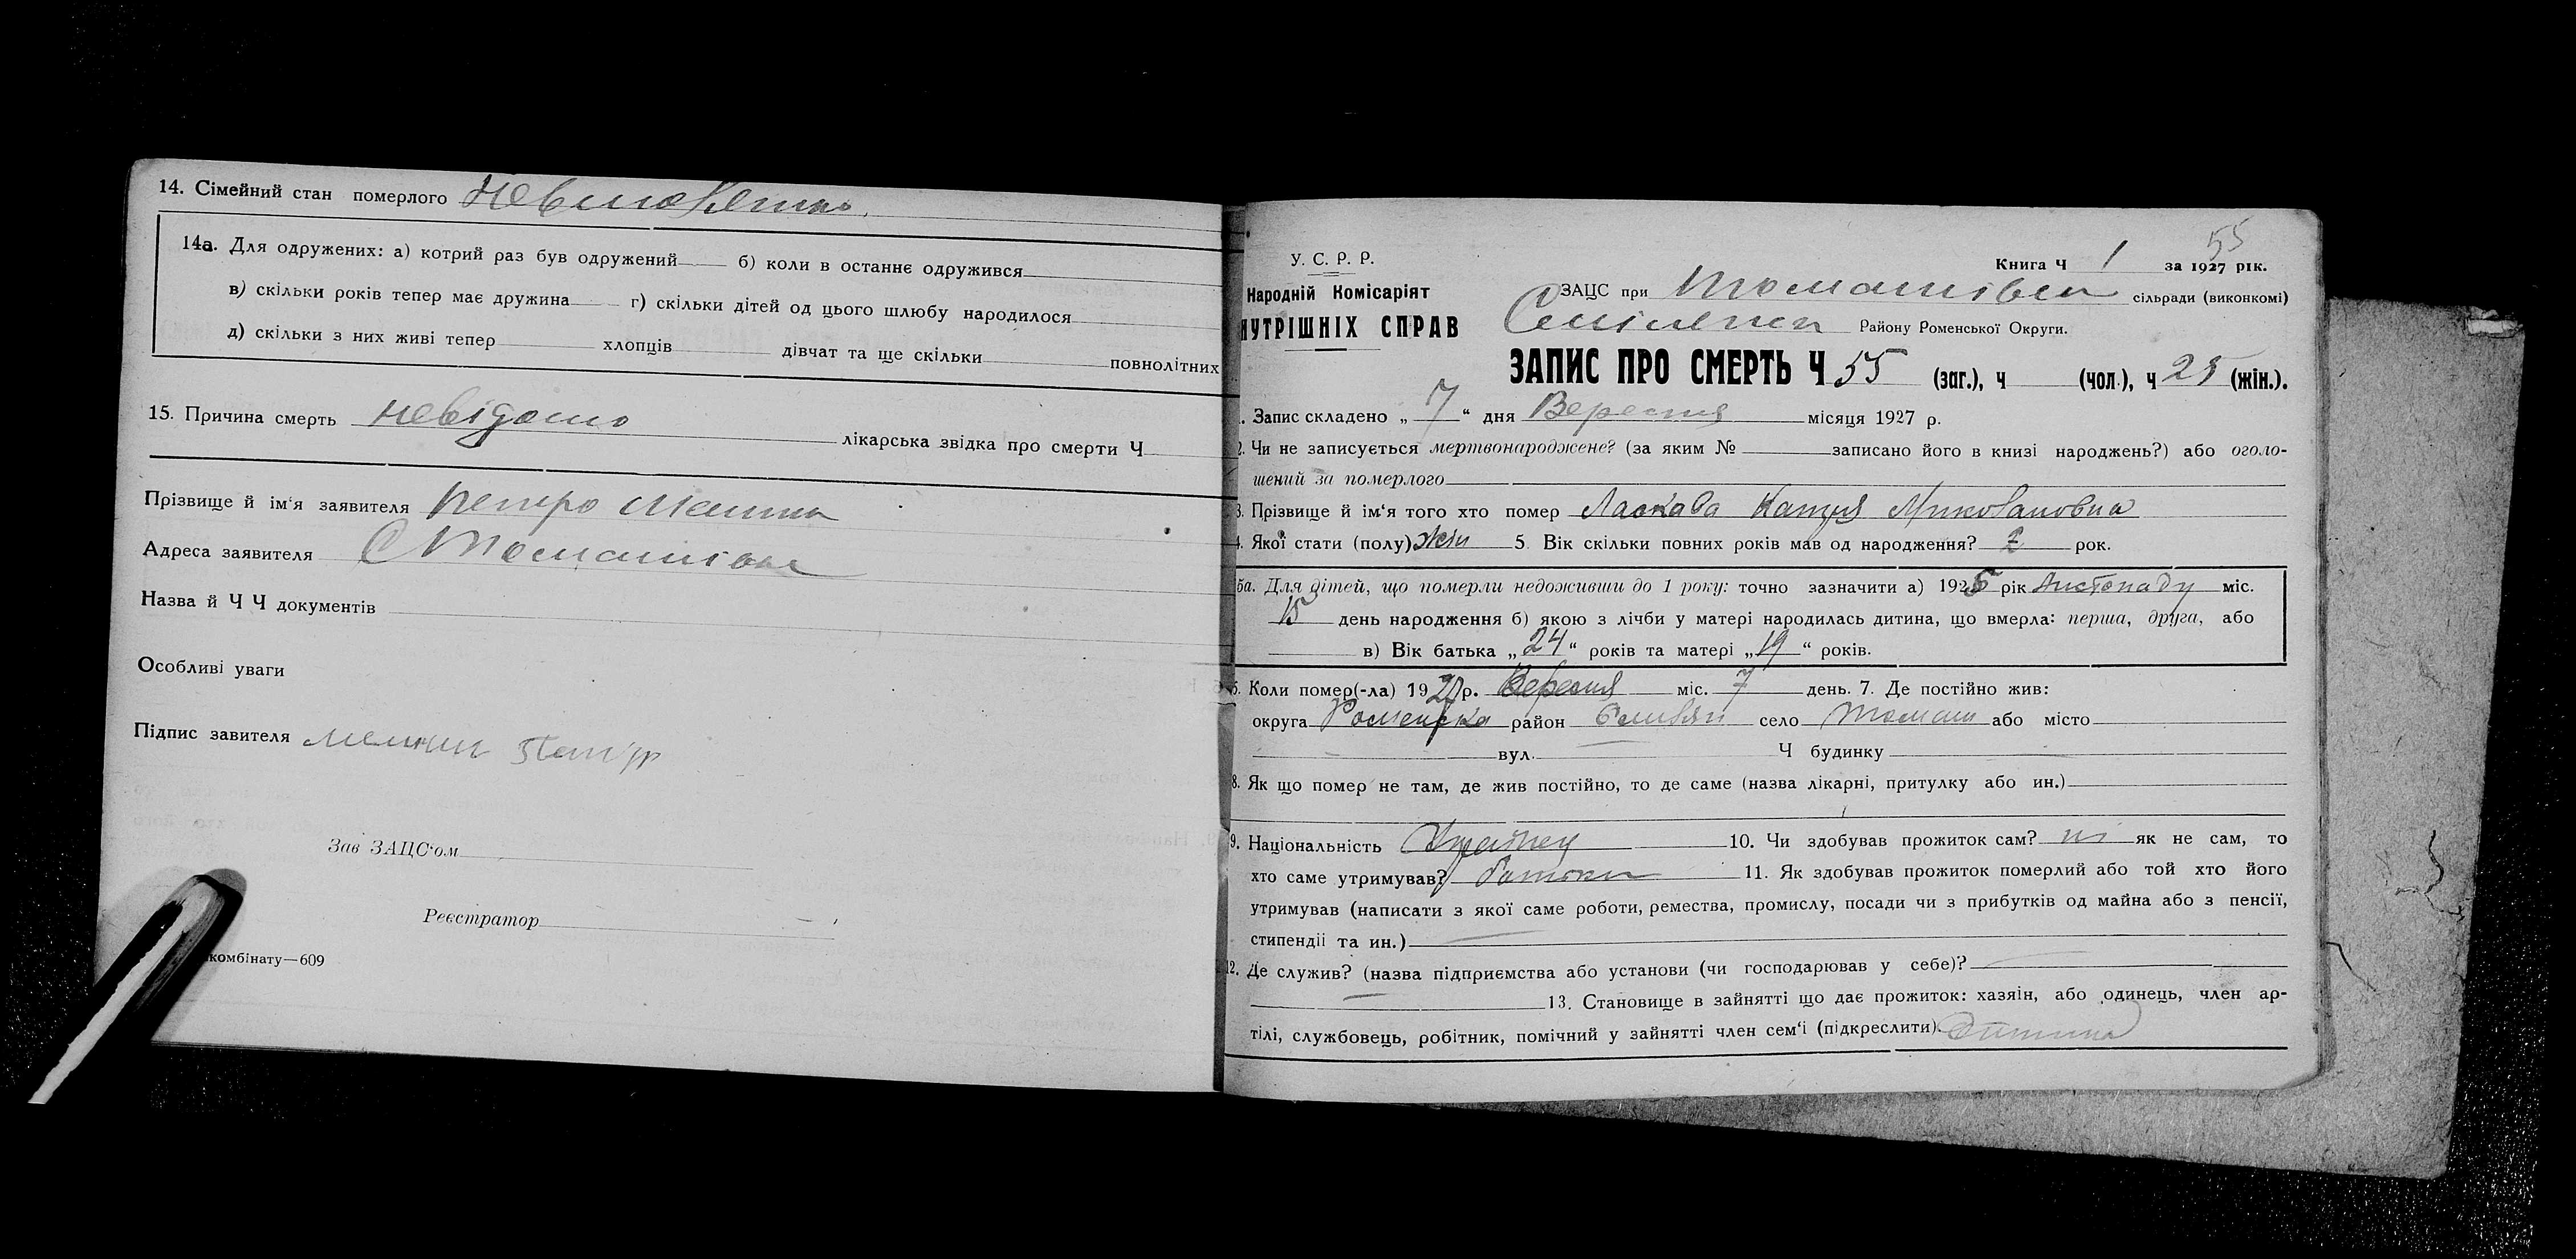 14. Сімейний стан померлого
14а. Для одружених: а) котрий раз був одружений б) коли в останнє одружився
в) скільки років тепер має дружина г) скільки дітей од цього шлюбу народилося
д) скільки з них живі тепер хлопців дівчат та ще скільки повнолітних
15. Причина смерть невідомо лікарська звідка про смерти Ч
Прізвище й ім'я заявителя Петро
Адреса заявителя С
Назва й Ч Ч документів
Особливі уваги
Підпис завителя
Зав ЗАЦС'ом
Реєстратор
комбінату—609
55
У. С. Р. Р.
Книга Ч 1 за 1927 рік.
Народній Комісаріят
НУТРІШНІХ СПРАВ
ЗАЦС при сільради (виконкомі)
Району Роменської Округи.
ЗАПИС ПРО СМЕРТЬ Ч 55 (заг.), ч (чол.), ч 25 (жін.).
1. Запис складено „ 7 “ дня Вересня місяця 1927 р.
2. Чи не записується мертвонароджене? (за яким № записано його в книзі народжень?) або оголо-
шений за померлого
3. Прізвище й ім'я того хто помер Ласкава Катря Миколаовна
4. Якої стати (полу) жін 5. Вік скільки повних років мав од народження? 2 рок.
5а. Для дітей, що померли недоживши до 1 року: точно зазначити а) 1925 рік Листопаду міс.
15 день народження б) якою з лічби у матері народилась дитина, що вмерла: перша, друга, або
в) Вік батька „24“ років та матері „19“ років.
6. Коли помер(-ла) 1927 р. Вересня міс. 7 день. 7. Де постійно жив:
округа Роменська район село або місто
вул. Ч будинку
8. Як що помер не там, де жив постійно, то де саме (назва лікарні, притулку або ин.)
9. Національність 10. Чи здобував прожиток сам? ні як не сам, то
хто саме утримував? батьки 11. Як здобував прожиток померлий або той хто його
утримував (написати з якої саме роботи, ремества, промислу, посади чи з прибутків од майна або з пенсії,
стипендії та ин.)
12. Де служив? (назва підприємства або установи (чи господарював у себе)?
13. Становище в зайнятті що дає прожиток: хазяїн, або одинець, член ар-
тілі, службовець, робітник, помічний у зайнятті член сем'ї (підкреслити). Дитина